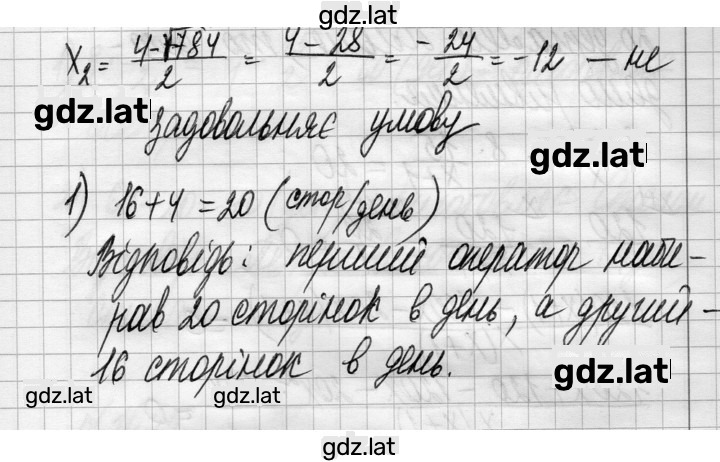 gdz.lat
x₂ = (4-√784)/2 = (4-28)/2 = -24/2 = -12 – не
gdz.lat
задовольняє умову
gdz.lat
1) 16+4=20 (стор/день)
Відповідь: перший оператор наби-
рав 20 сторінок в день, а другий -
16 сторінок в день.
gdz.lat
gdz.lat
gdz.lat
gdz.lat